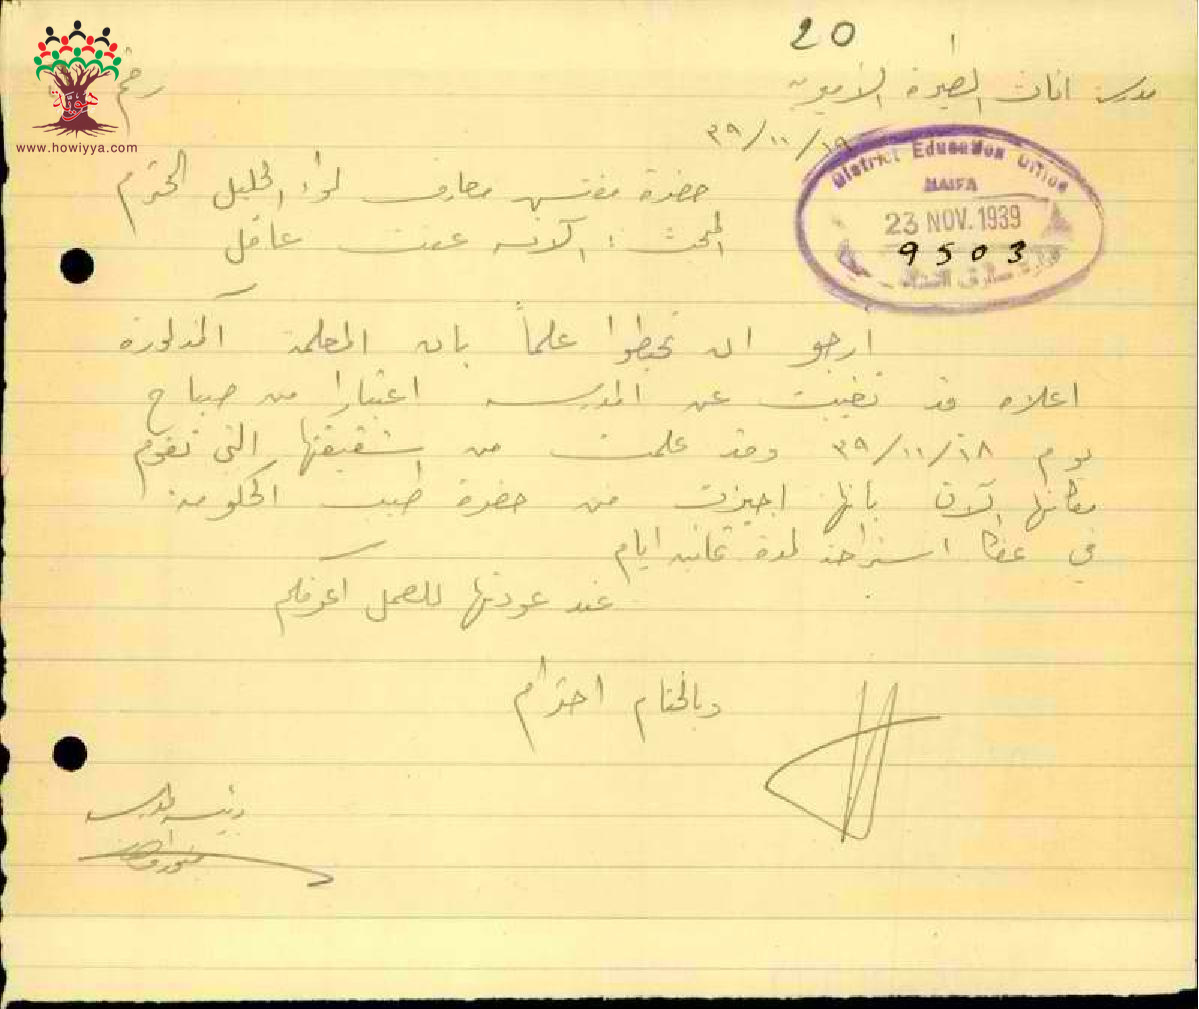 20
مدرسة اناث الطيرة الاميرية
رقم
١٩/١١/٣٩
هوية
www.howiyya.com
District Education Office
HAIFA
23 NOV. 1939
9503
حضرة مفتش معارف لواء الجليل المحترم
المبحث : الآنسه عفت عاقل
ارجو ان تحيطوا علماً بان المعلمة المذكورة
اعلاه قد تغيبت عن المدرسه اعتبارا من صباح
يوم ١٨/١١/٣٩ وقد علمت من شقيقتها التي تقوم
مكانها الآن بانها اجيزت من حضرة طبيب الحكومة
في عكا استراحة لمدة ثمانيه ايام
عند عودتها للعمل اعرفكم
وبالختام احترام
رئيسة المدرسه